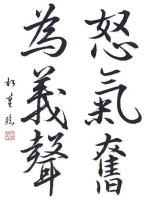 怒氣奮
為義聲